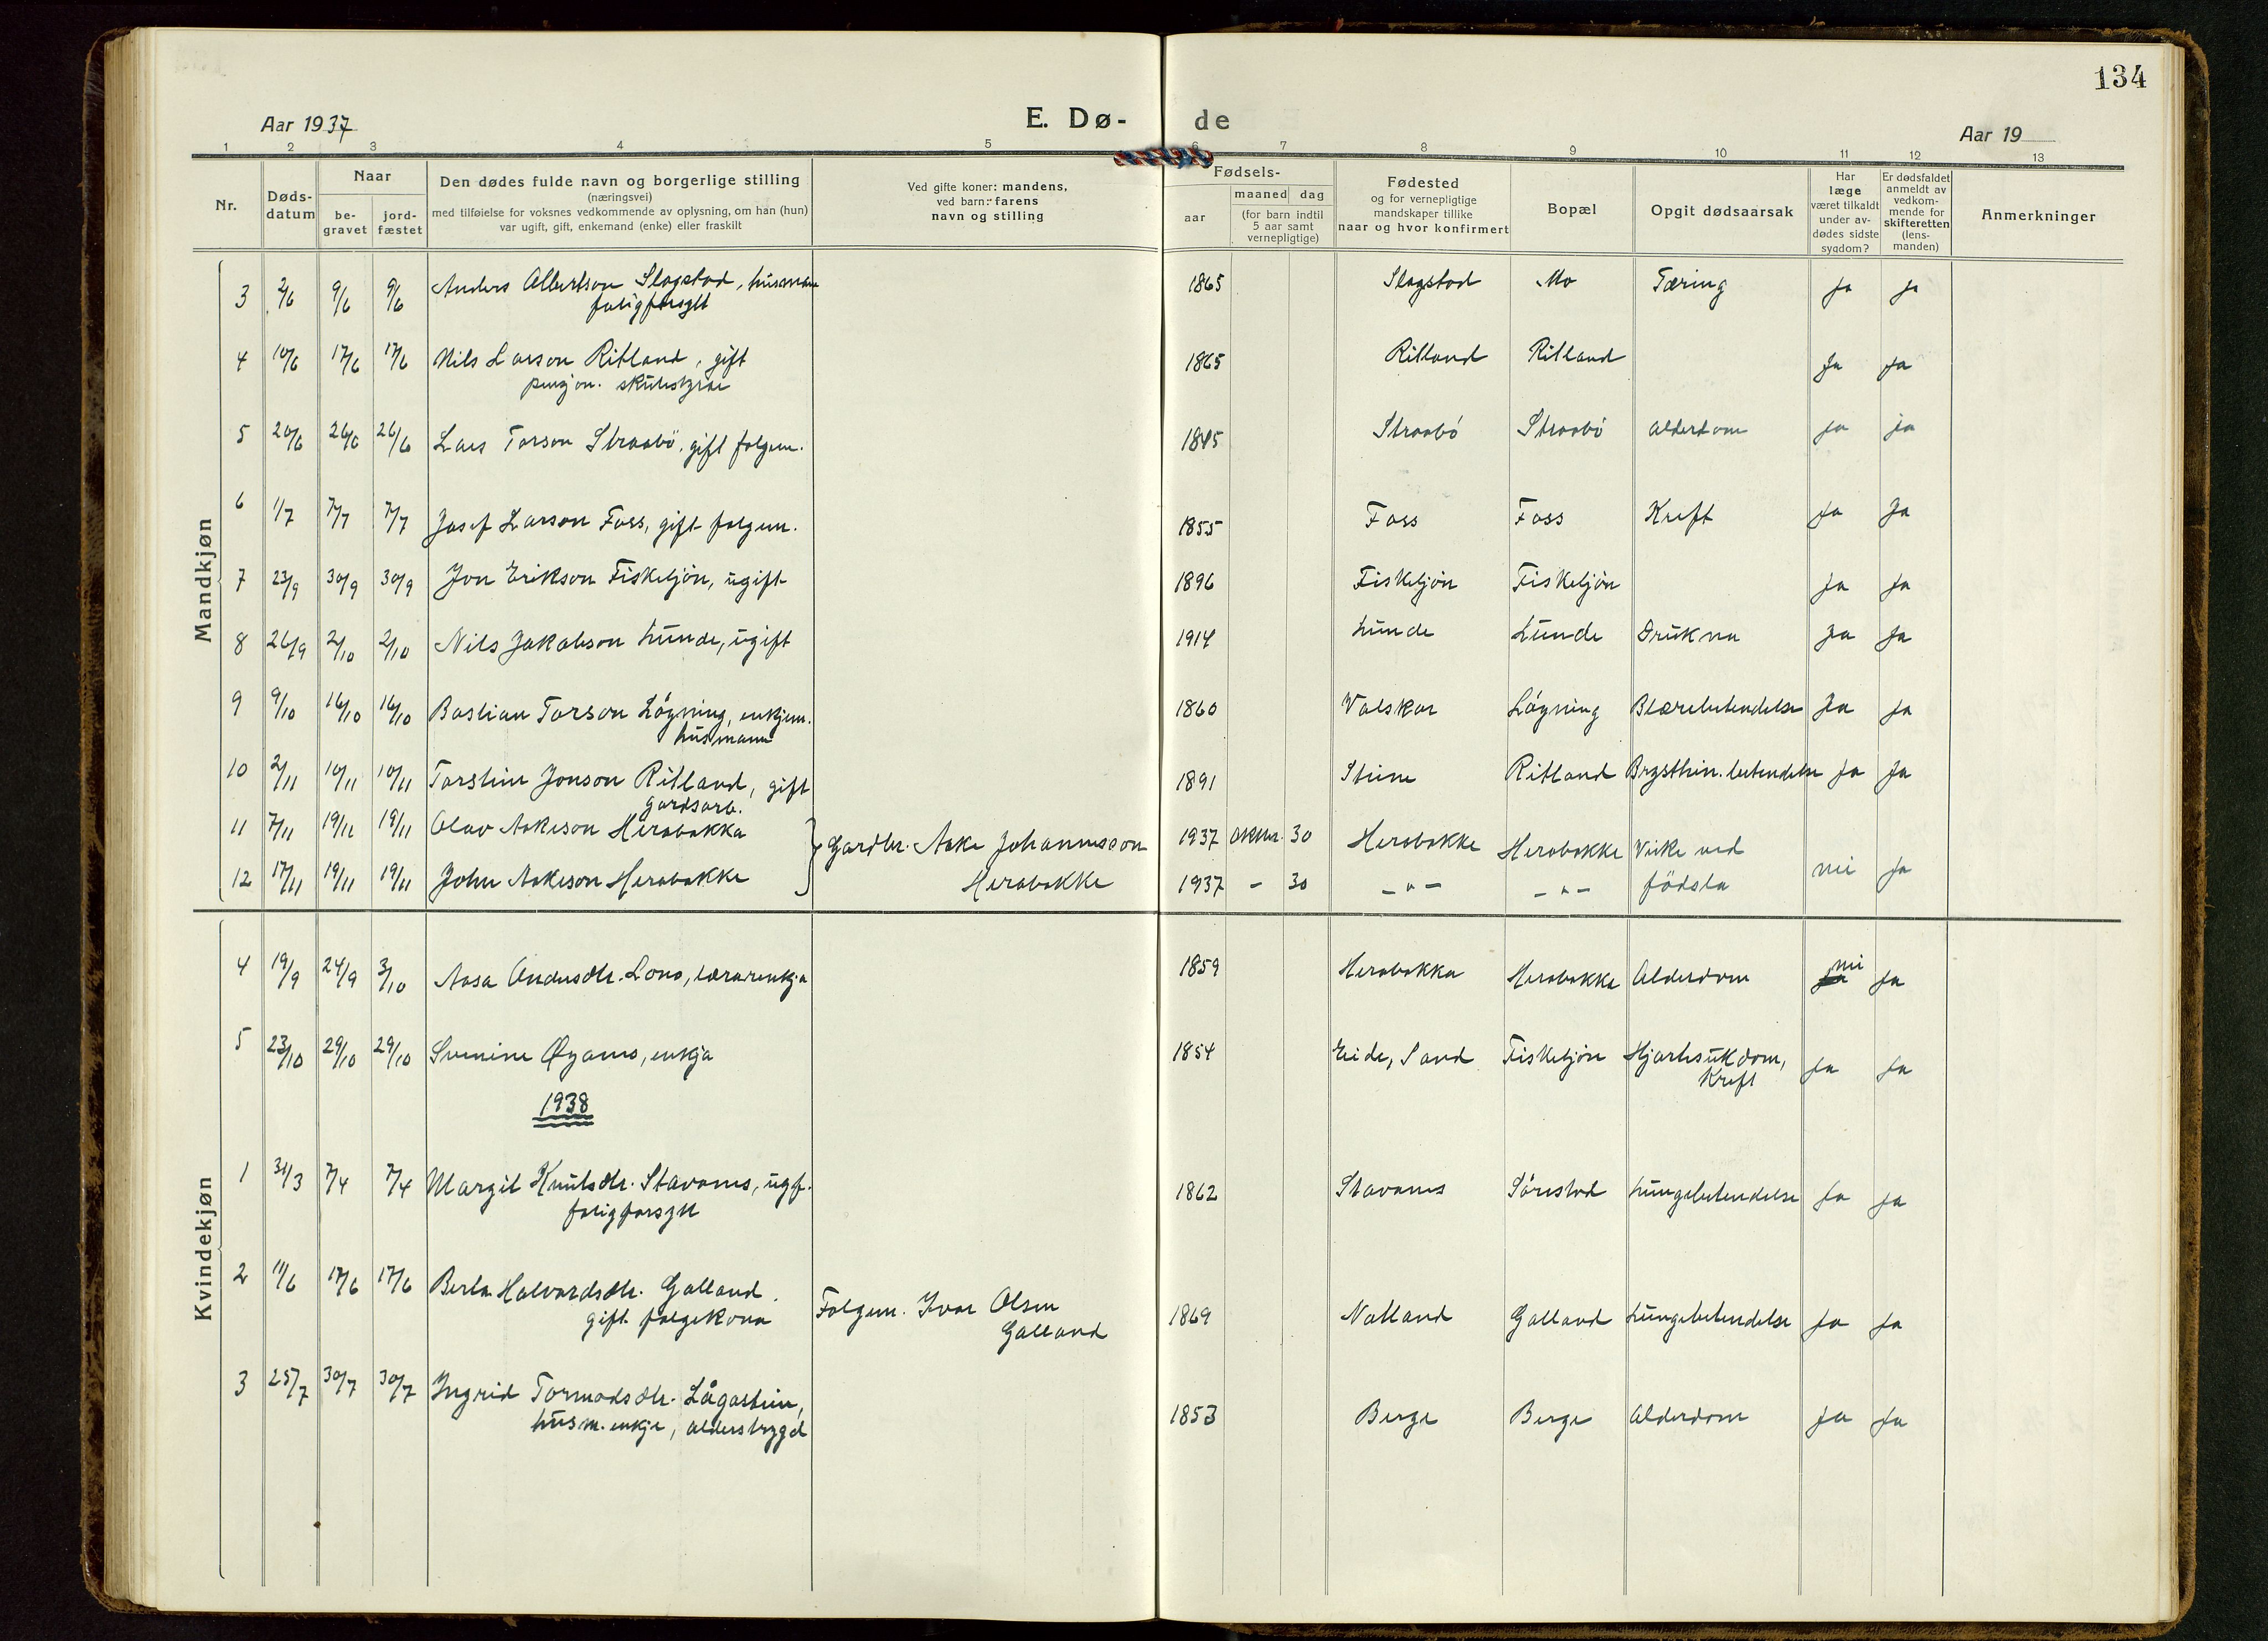 134
Aar 1937 E. Dø- de Aar 19
1 2 3 4 5 6 7 8 9 10 11 12 13
Nr. Døds-datum Naar be-gravet jord-fæstet Den dødes fulde navn og borgerlige stilling (næringsvei) med tilføielse for voksnes vedkommende av oplysning, om han (hun) var ugift, gift, enkemand (enke) eller fraskilt Ved gifte koner: mandens, ved barn: farens navn og stilling Fødsels- aar maaned dag (for barn indtil 5 aar samt vernepligtige) Fødested og for vernepligtige mandskaper tillike naar og hvor konfirmert Bopæl Opgit dødsaarsak Har læge været tilkaldt under av-dødes sidste sygdom? Er dødsfaldet anmeldt av vedkom-mende for skifteretten (lens-manden) Anmerkninger
Mandkjøn
3 2/6 9/6 9/6 Anders Albertson Slagstad, husmann 1865 Slagstad Mo Tæring Ja Ja
fatigforsytt
4 10/6 17/6 17/6 Nils Larson Ritland, gift 1865 Ritland Ritland Ja Ja
pensjon. skulestyrar
5 20/6 26/6 26/6 Lars Torson Straabö, gift folgem. 1845 Straabö Straabö Alderdom Ja Ja
6 1/7 7/7 7/7 Josef Larson Foss, gift folgem. 1855 Foss Foss Kreft Ja Ja
7 23/9 30/9 30/9 Jon Erikson Fiskeljön, ugift 1896 Fiskeljön Fiskeljön Ja Ja
8 26/9 2/10 2/10 Nils Jakobson Lunde, ugift 1914 Lunde Lunde Drukna Ja Ja
9 9/10 16/10 16/10 Bastian Torson Lögning, enkjem. 1860 Valskar Lögning Blærebetendelse Ja Ja
husmann
10 2/11 10/11 10/11 Torstein Jonson Ritland, gift 1891 Steine Ritland Brysthin. betendelse Ja Ja
gardsarb.
11 7/11 19/11 19/11 Olav Aakeson Herabakka Gardbr. Aake Johannesson 1937 Oktbr. 30 Herabakke Herabakke Veike ved
12 17/11 19/11 19/11 John Aakeson Herabakke Herabakke 1937 - 30 - " - - " - födsla nei Ja
Kvindekjøn
4 19/9 24/9 3/10 Aasa Andersdtr. Lono, lærarenkja 1859 Herabakka Herabakke Alderdom nei Ja
5 23/10 29/10 29/10 Svenine Øyanes, enkja 1854 Eide, Sand Fiskeljön Hjartesukdom, Ja Ja
Kreft
1938
1 31/3 7/4 7/4 Margit Knutsdtr. Stavanes, ugf. 1862 Stavanes Sörestad Lungebetendelse Ja Ja
fatigforsytt
2 11/6 17/6 17/6 Berta Halvardsdtr. Galland.
gift folgekona Folgem. Ivar Olsen 1869 Natland Galland Lungebetendelse Ja Ja
Galland
3 25/7 30/7 30/7 Ingrid Tormodsdtr. Lågastein, 1853 Berge Berge Alderdom Ja Ja
husm. enkje, alderstrygd